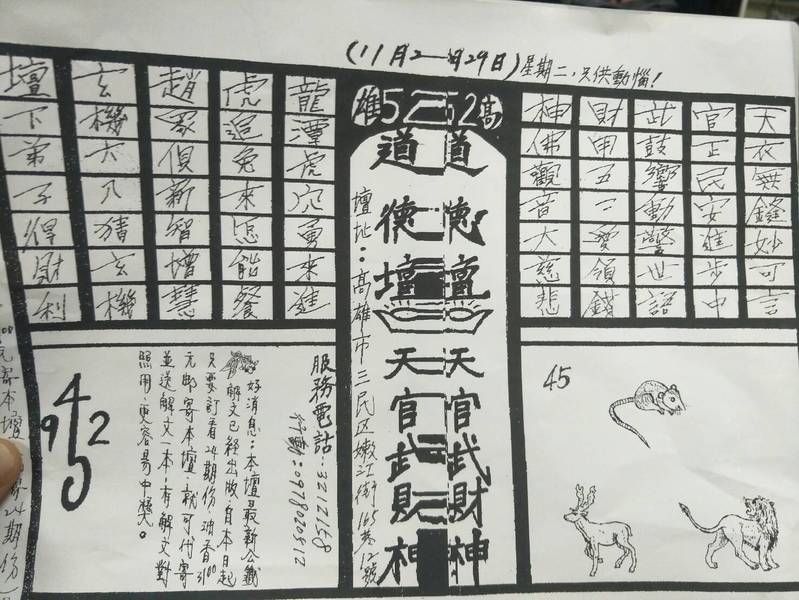 (11月2—11月29日)星期二,只供動惱!
天衣無鏠妙可言
官正民安進步中
此鼓響動警世語
財甲五二愛領錢
神佛觀音大慈悲
雄52 52高
道德壇 道德壇
天官武財神 天官武財神
壇址:高雄市三民区嫩江街165巷12號
龍潭虎穴勇來進
虎追兔來怎能餐
趙家偵新智增慧
玄機六八猜玄機
壇下弟子得財利
45
服務電話:3212158
行動:0978020512
好消息:本壇最新公籤
解文已經出版,自本日起
只要訂看24期份,油香3100
元郵寄本壇,就可代寄
並送解文一本,有解文對
照用,更容易中獎。
4
9 2